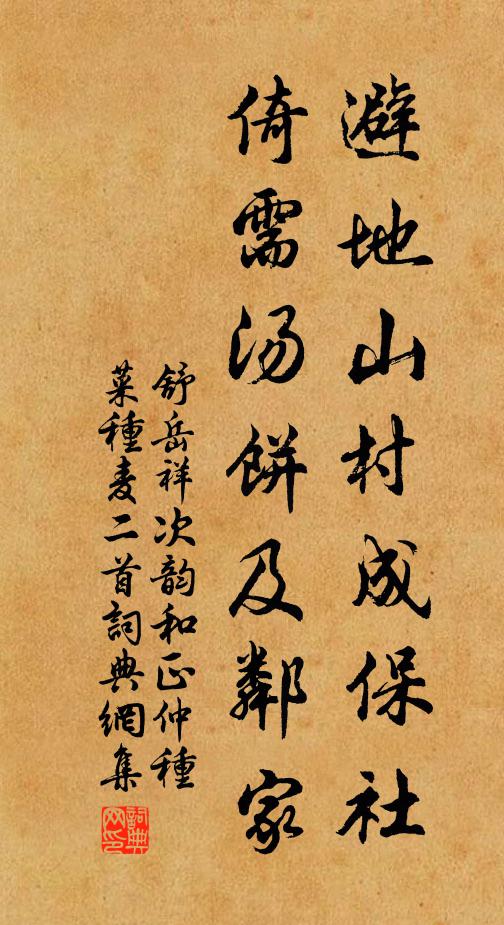 避地山村成保社
倚需汤餅及鄰家
舒岳祥次韵和正仲種
菜種麦二首詞典網集
詞典
网印